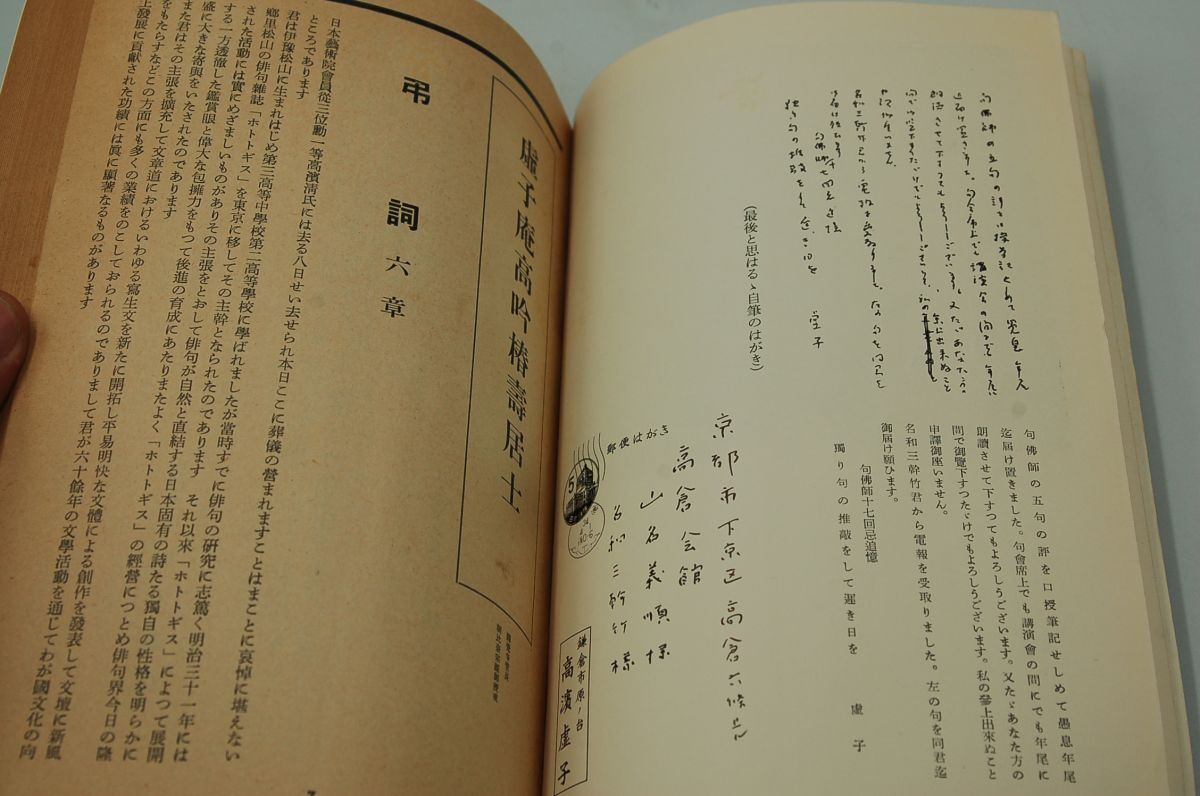 句佛師の五句の評を口授筆記せしめて愚息年尾
迄届け置きました。句會席上でも講演會の間にでも年尾に
朗讀させて下すつてもよろしうございます。又たゞあなた方の
間で御覽下すつたゞけでもよろしうございます。私の參上出來ぬこと
申譯御座いません。
名和三幹竹君から電報を受取りました。左の句を同君迄
御届け願ひます。
句佛師十七回忌追憶
獨り句の推敲をして遲き日を
虚子
(最後と思はるゝ自筆のはがき)
郵便はがき
京都市下京区高倉六條上ル
高倉会館
山名義順様
名和三幹竹様
鎌倉市原ノ台
高濱虚子
虚子庵高吟椿壽居士
弔詞六章
日本藝術院會員從三位勳一等高濱淸氏には去る八日せい去せられ本日ここに葬儀の營まれますことはまことに哀悼に堪えない
ところであります
君は伊豫松山に生まれはじめ第三高等中學校第二高等學校に學ばれましたが當時すでに俳句の硏究に志篤く明治三十一年には
鄕里松山の俳句雜誌「ホトトギス」を東京に移してその主幹となられたのであります それ以來「ホトトギス」によつて展開
された活動には實にめざましいものがありその主張をとおして俳句が自然と直結する日本固有の詩たる獨自の性格を明らかに
する一方透徹した鑑賞眼と偉大な包擁力をもつて後進の育成にあたりまたよく「ホトトギス」の經營につとめ俳句界今日の隆
盛に大きな寄與をいたされたのであります
また君はその主張を擴充して文章道におけるいわゆる寫生文を新たに開拓し平易明快な文體による創作を發表して文壇に新風
をもたらすなどこの方面にも多くの業績をのこしておられるのでありまして君が六十餘年の文學活動を通じてわが國文化の向
上發展に貢獻された功績には眞に顯著なるものがあります